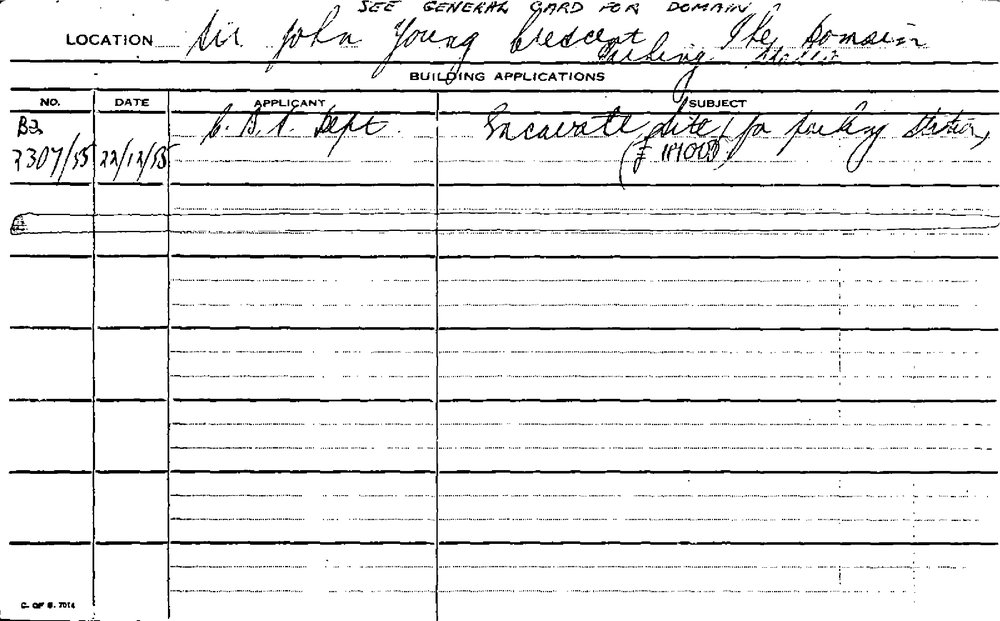 SEE GENERAL CARD FOR DOMAIN
LOCATION Sir John Young Crescent The Domain
Parking Station
BUILDING APPLICATIONS
NO. DATE APPLICANT SUBJECT
B2 C. B. S. Dept. Excavate site for parking station,
2307/55 22/12/55
C. OF S. 7014